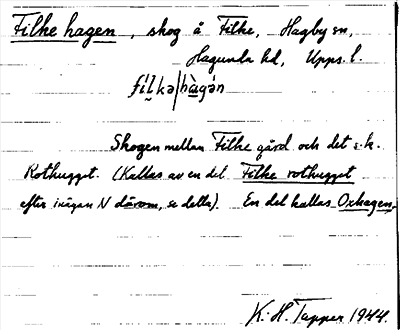 Filke hagen, skog å Filke, Hagby sn,
Hagunda hd, Upps. l.
Skogen mellan Filke gård och det s.k.
Rothugget. (Kallas av en del Filke rothugget
efter inägan N därom, se detta). En del kallas Oxhagen.
K. H. Tapper 1944.